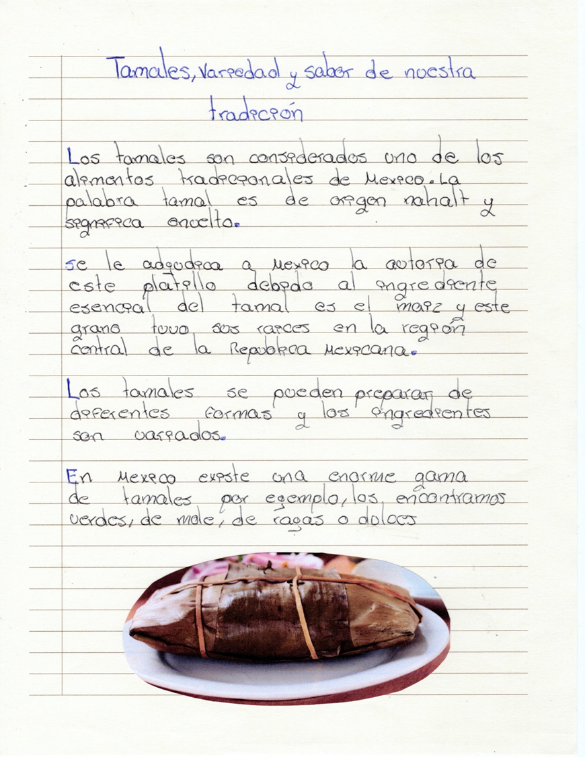 Tamales, variedad y sabor de nuestra
tradición
Los tamales son considerados uno de los
alimentos tradicionales de Mexico. La
palabra tamal es de origen nahalt y
significa envuelto.
se le adjudica a Mexico la autoria de
este platillo debido al ingrediente
esencial del tamal es el maiz y este
grano tuvo sus raices en la región
central de la Republica Mexicana.
Los tamales se pueden preparar de
diferentes formas y los ingredientes
son variados.
En Mexico existe una enorme gama
de tamales por ejemplo, los encontramos
verdes, de mole, de rajas o dulces